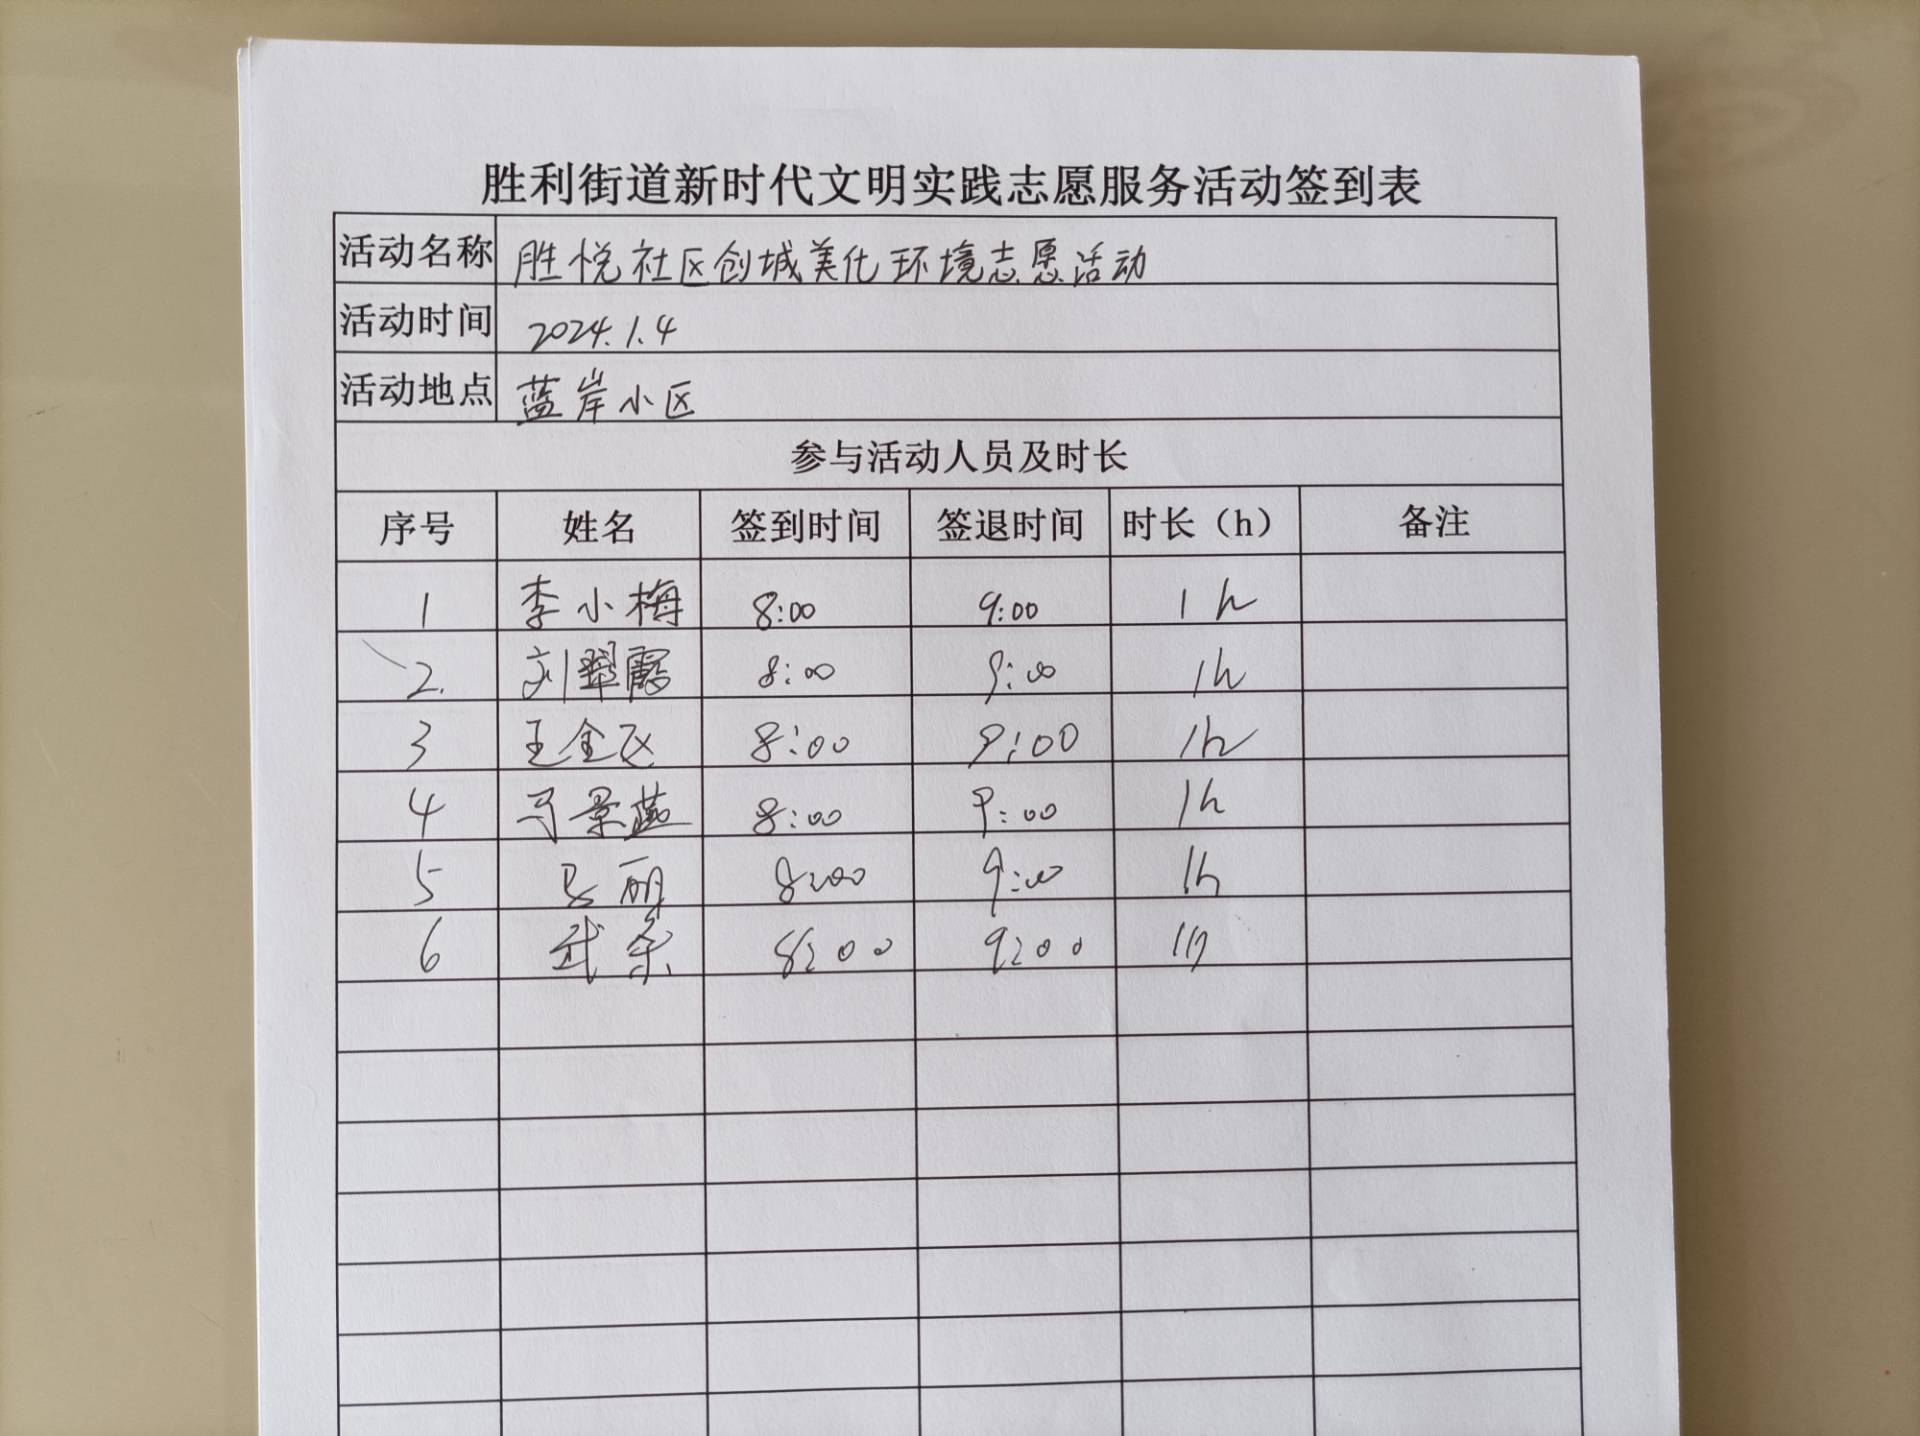 胜利街道新时代文明实践志愿服务活动签到表
活动名称 胜悦社区创城美化环境志愿活动
活动时间 2024.1.4
活动地点 蓝岸小区
参与活动人员及时长
序号 姓名 签到时间 签退时间 时长（h） 备注
1 李小梅 8:00 9:00 1h
2. 刘翠霞 8:00 9:00 1h
3 王金 8:00 9:00 1h
4 景燕 8:00 9:00 1h
5 丽 8:00 9:00 1h
6 武 8:00 9:00 1h